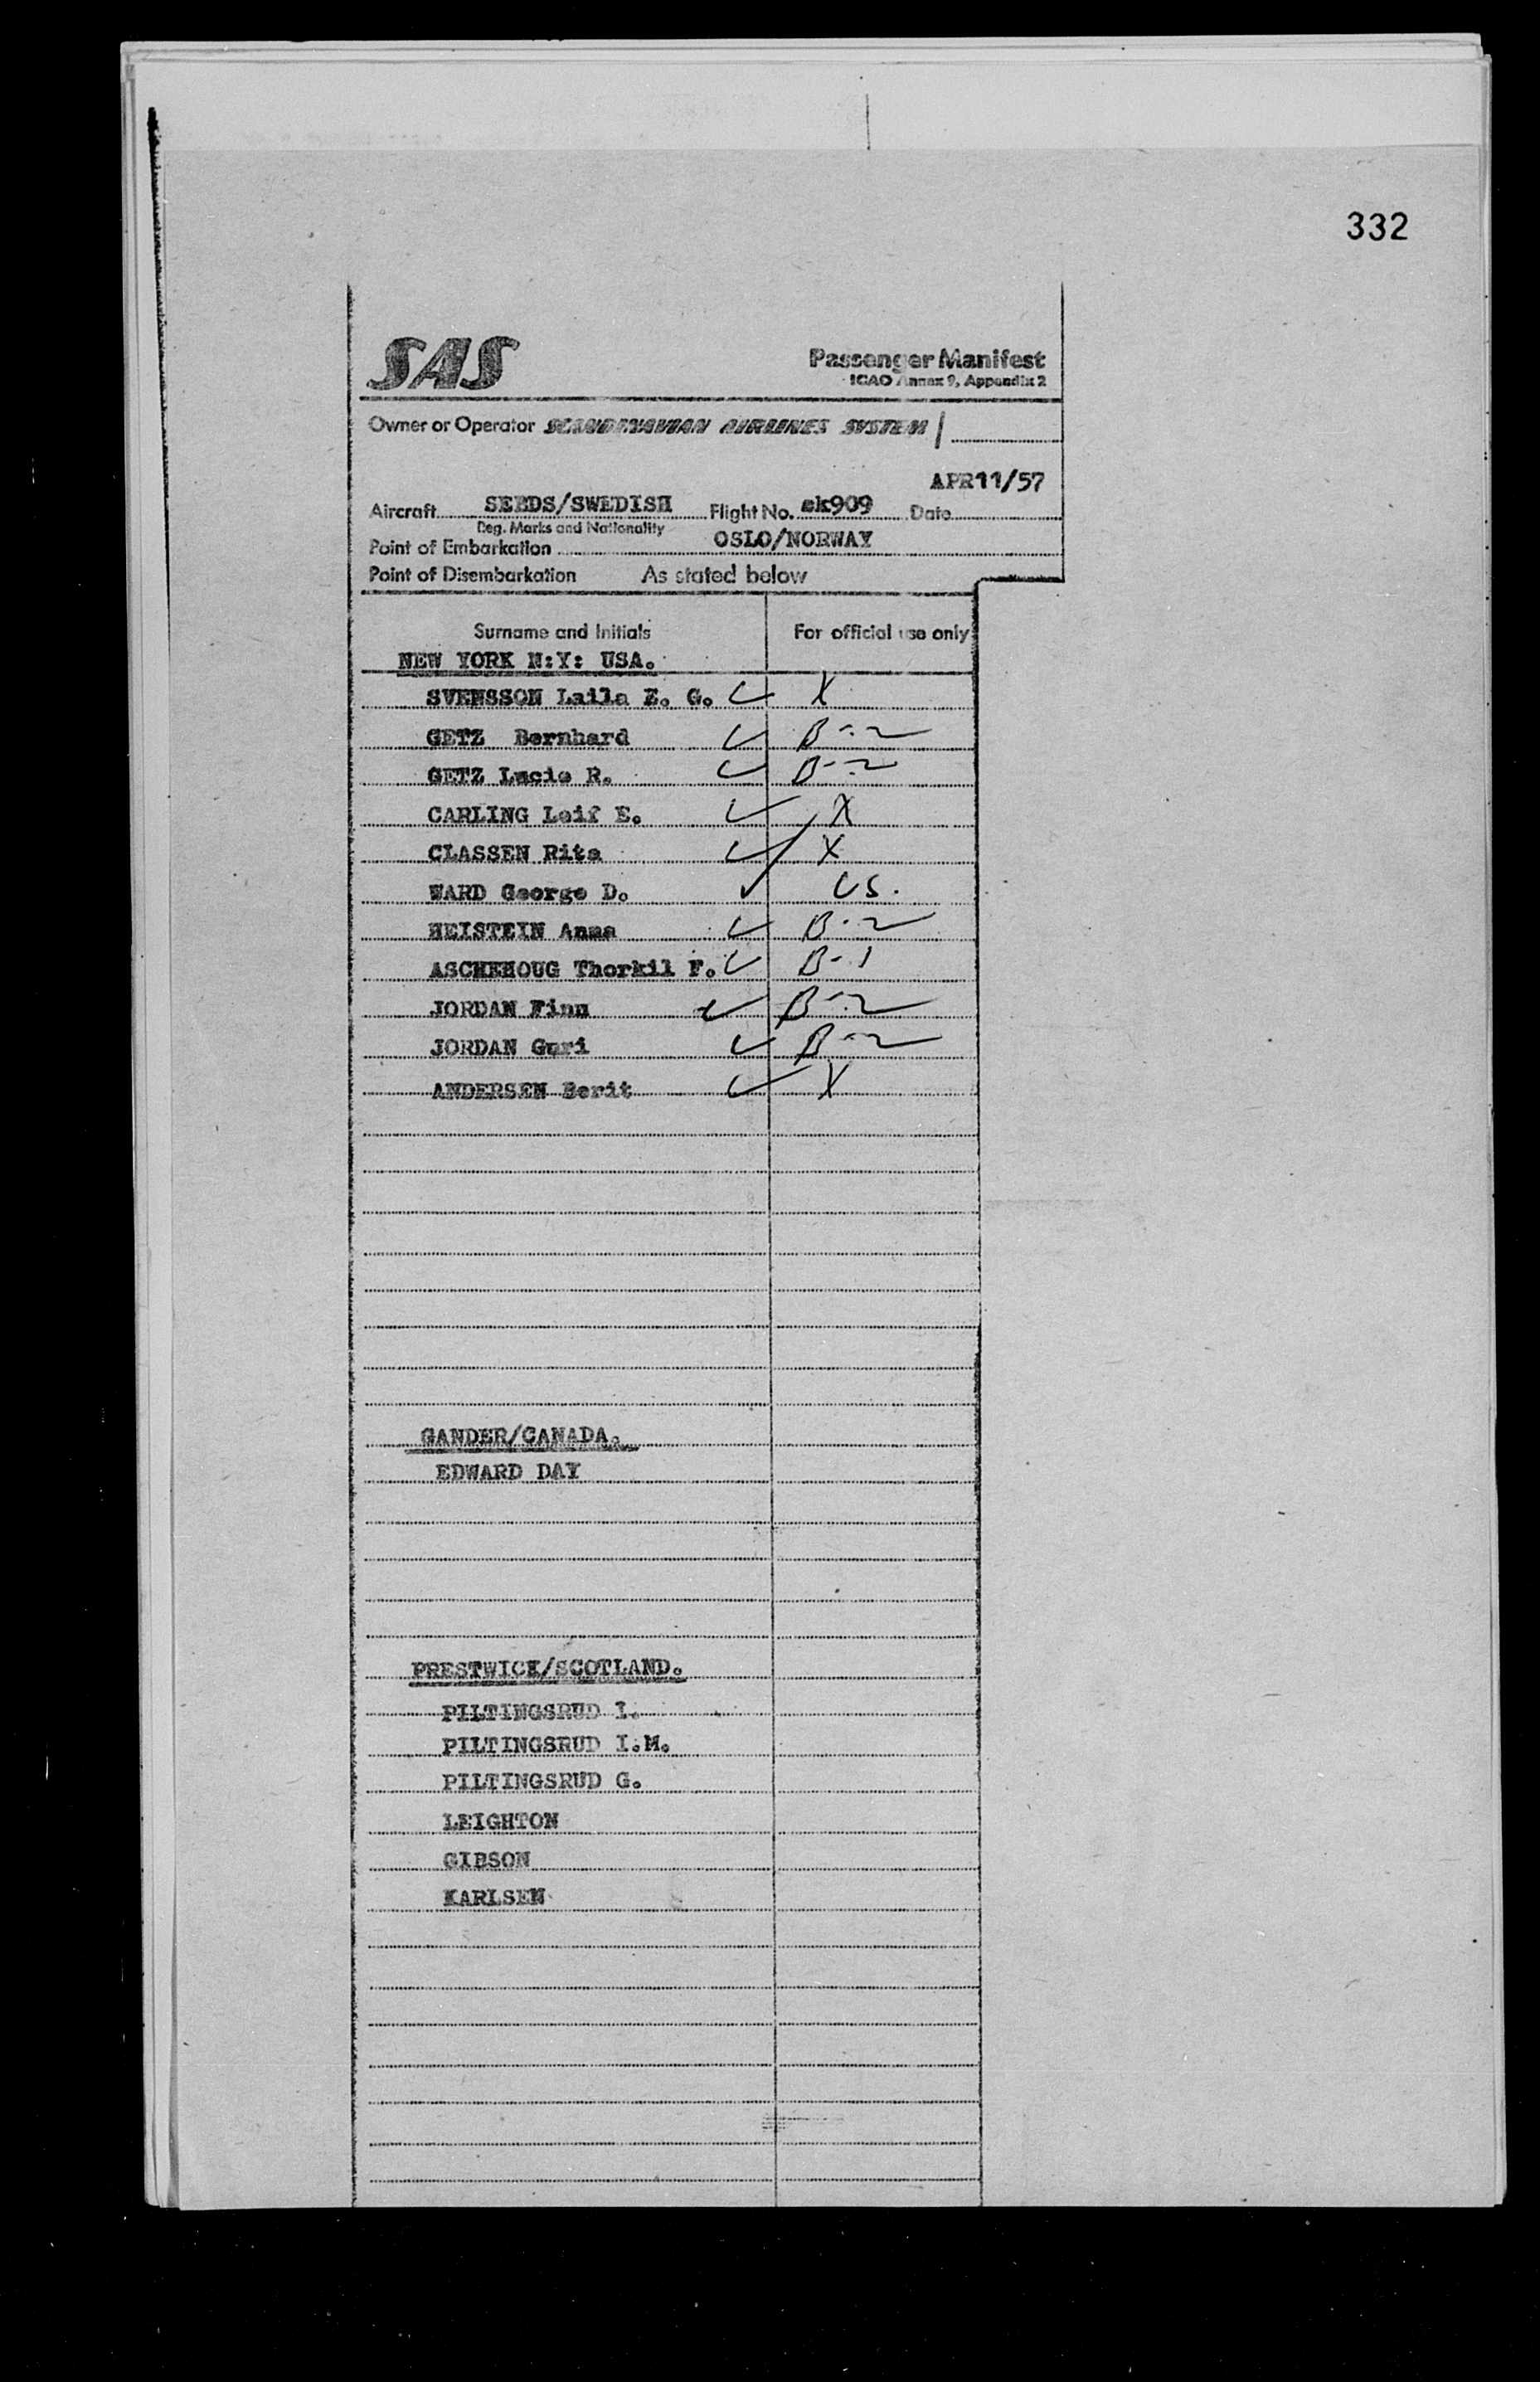 332
SAS
Passenger Manifest
ICAO Annex 9, Appendix 2
Owner or Operator SCANDINAVIAN AIRLINES SYSTEM
APR11/57
Aircraft SEBDS/SWEDISH Flight No. sk909 Date
Reg. Marks and Nationality
Point of Embarkation OSLO/NORWAY
Point of Disembarkation As stated below
Surname and Initials For official use only
NEW YORK N:Y: USA.
SVENSSON Laila E. G. ✓ X
GETZ Bernhard ✓ B-2
GETZ Lucie R. ✓ B-2
CARLING Leif E. ✓ X
CLASSEN Rita ✓ X
WARD George D. ✓ US.
HEISTEIN Anna ✓ B-2
ASCHEHOUG Thorkil F. ✓ B-1
JORDAN Finn ✓ B-2
JORDAN Guri ✓ B-2
ANDERSEN Berit ✓ X
GANDER/CANADA.
EDWARD DAY
PRESTWICK/SCOTLAND.
PILTINGSRUD I.
PILTINGSRUD I.M.
PILTINGSRUD G.
LEIGHTON
GIBSON
KARLSEN